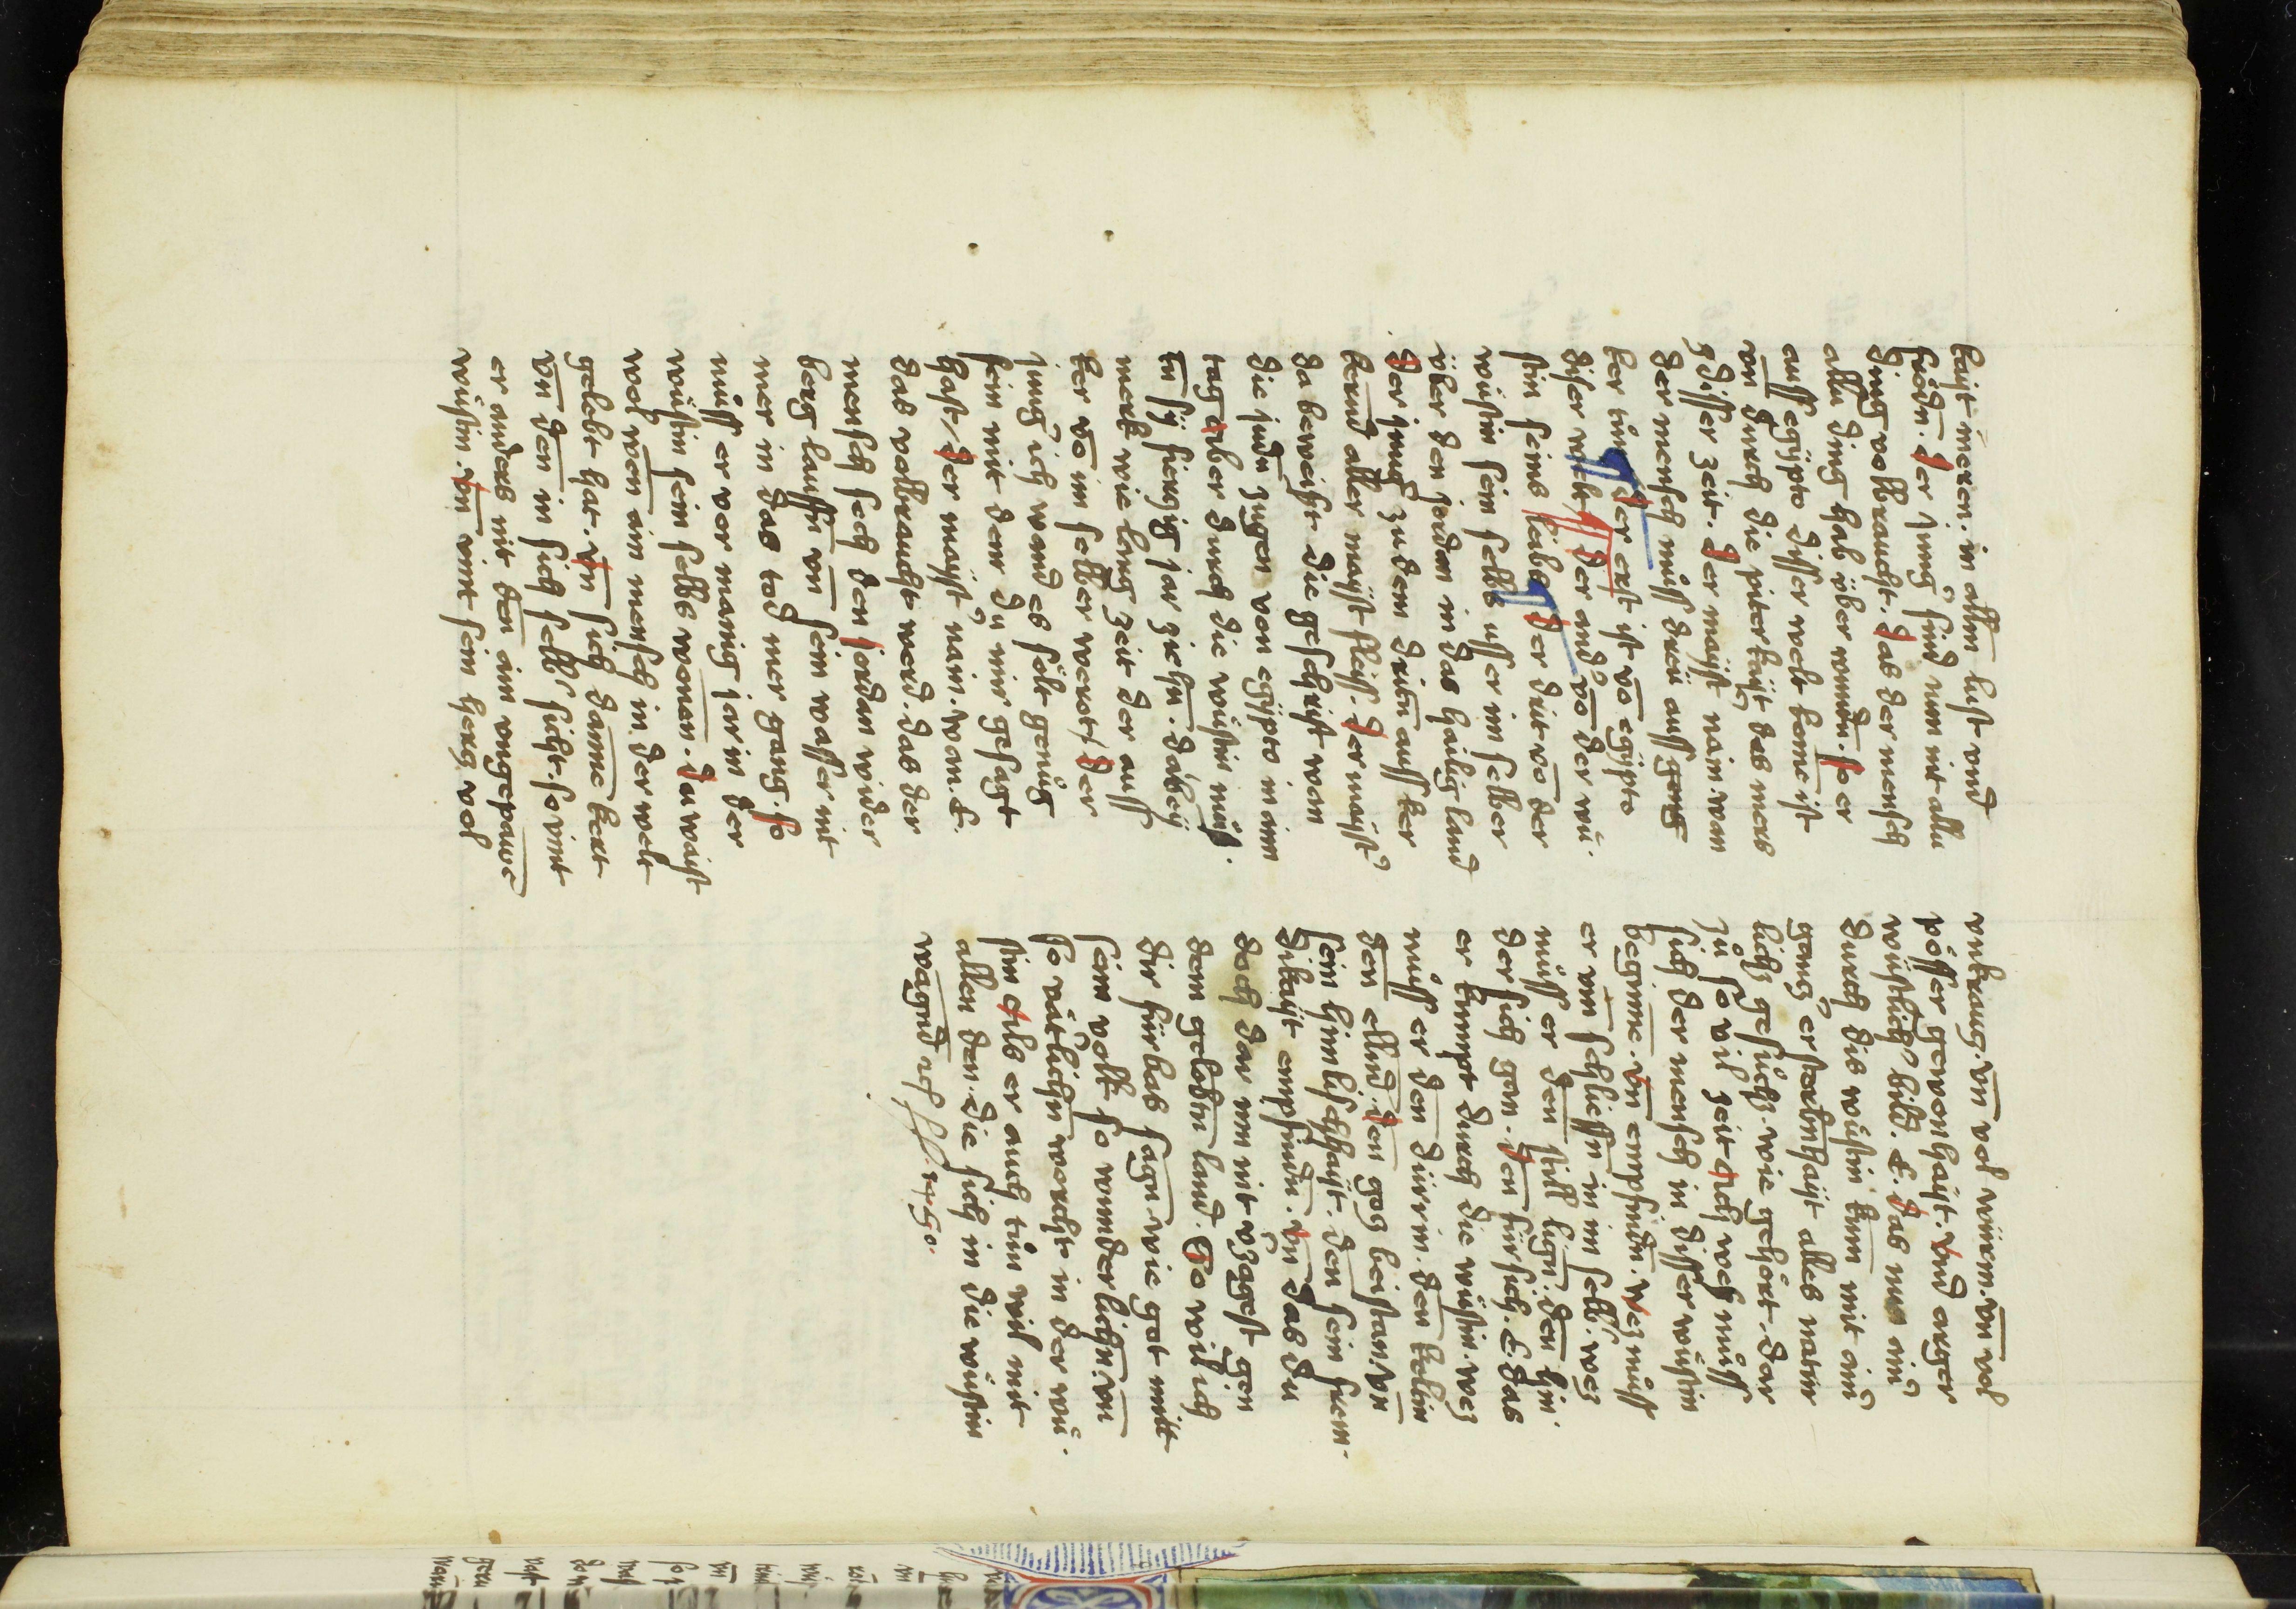 kayt meren. in allen lust vnd
frödn. Der jung sind nun nit allu
ding volbraucht. Das der mensch
allu ding hab über wundn. so er
auss egypto disser welt kome ist
vn durch die piterkayt des mers
disser zeit. Der mayst nain. wan
der mensch müss drü auss geng
ker tün Der erst ist vō egypto
diser welt Der and vō der wü-
stin seins libs Der drit vō der
wüstin sein selbs usser im selber
über den jordan in das hailig land
Der jung zu dem dritn auss ker
kerund aller mayst fleiss. Der mayst
da beweist die geschrift wan
die judn zugen von egypto in ainn
tag aber durch die wüstin müs-
tn sy fierzig jar ziehn. dabey
merk wie lang zeit der auss
ker vō im selber wert Der
jung ich wand es sölt genüg
sein mit dem du mir gesagt
hast Der mayst nain. wan. E.
das volbraucht werd. das der
mensch sech den jordan wider
berg lauffn vn sein wasser nit
mer in das tod mer gang. so
müss er vor manig jar in der
wüstin sein selbs wonen. Du waist
wol wen ain mensch in der welt
gelebt hat. vn sich danne kert
vn den in sich selb sücht. so vint
er anders nit den ain vngepawe
wüstin. vn vint sein herz vol
vnkraug. vn vol würem. vn vol
pösser gewonhayt. vnd auger
wüstlich bild. E. Das nun ain
durch dis wüstin kum mit ain
gancz erstorbnkayt alles natur
lichs gesüchs. wie gehört. dar
zü so vil zeit Ach wech müss
sich der mensch in disser wüstin
begeinne. vn empfindn. Wez müss
er vm schliessn in im selb. wez
müss er den still lign. den hin
der sich gan. Den für sich. E. das
er kumpt durch die wüstin. wez
müss er den dürrn. den keltin
den ellend. Den goz beistan. vn
sein himlischhayt. den sein frem-
dikayt empfindn. vn das du
doch dar vm nit vzagest gen
dem gelobtn land. So wil ich
dir fürbas sagn wie got mitt
seim volk so wunderlichn. vn
so vätlichn worcht in der wü-
stin Als er auch tün wil mit
allen den. die sich in die wüstin
wagnd